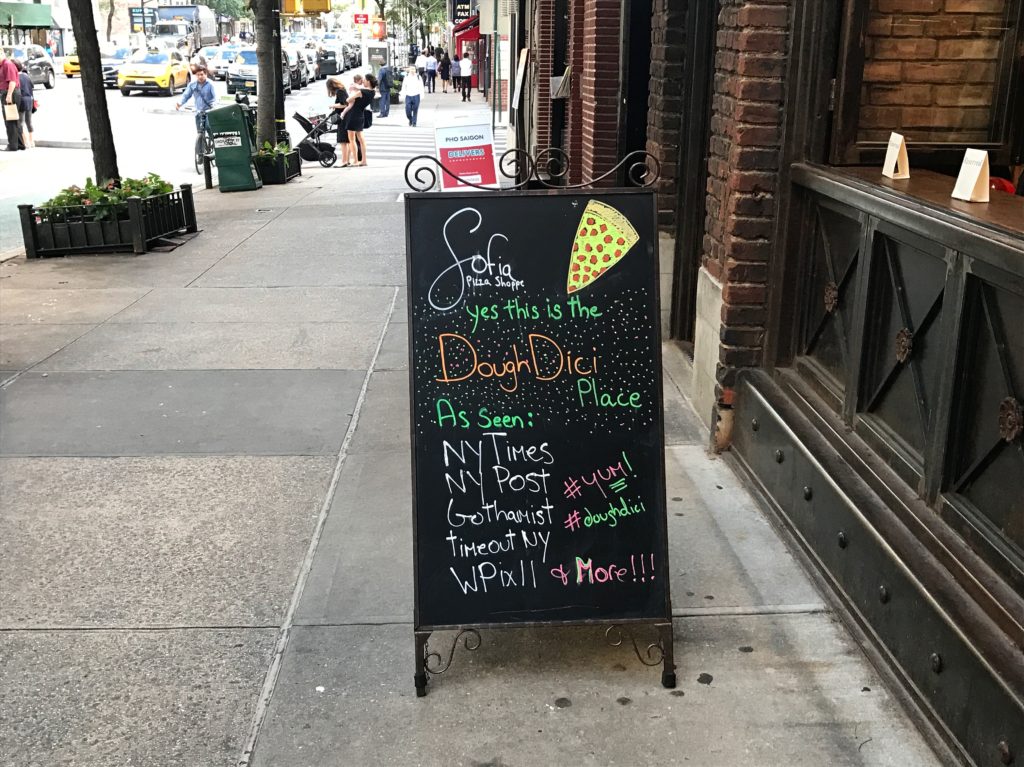 ATM
FAX
PHO SAIGON
DELIVERS
Sofia
Pizza Shoppe
yes this is the
DoughDici
Place
As Seen:
NYTimes
NY Post
#YUM!
Gothamist
#doughdici
timeout NY
WPix11 & More!!!